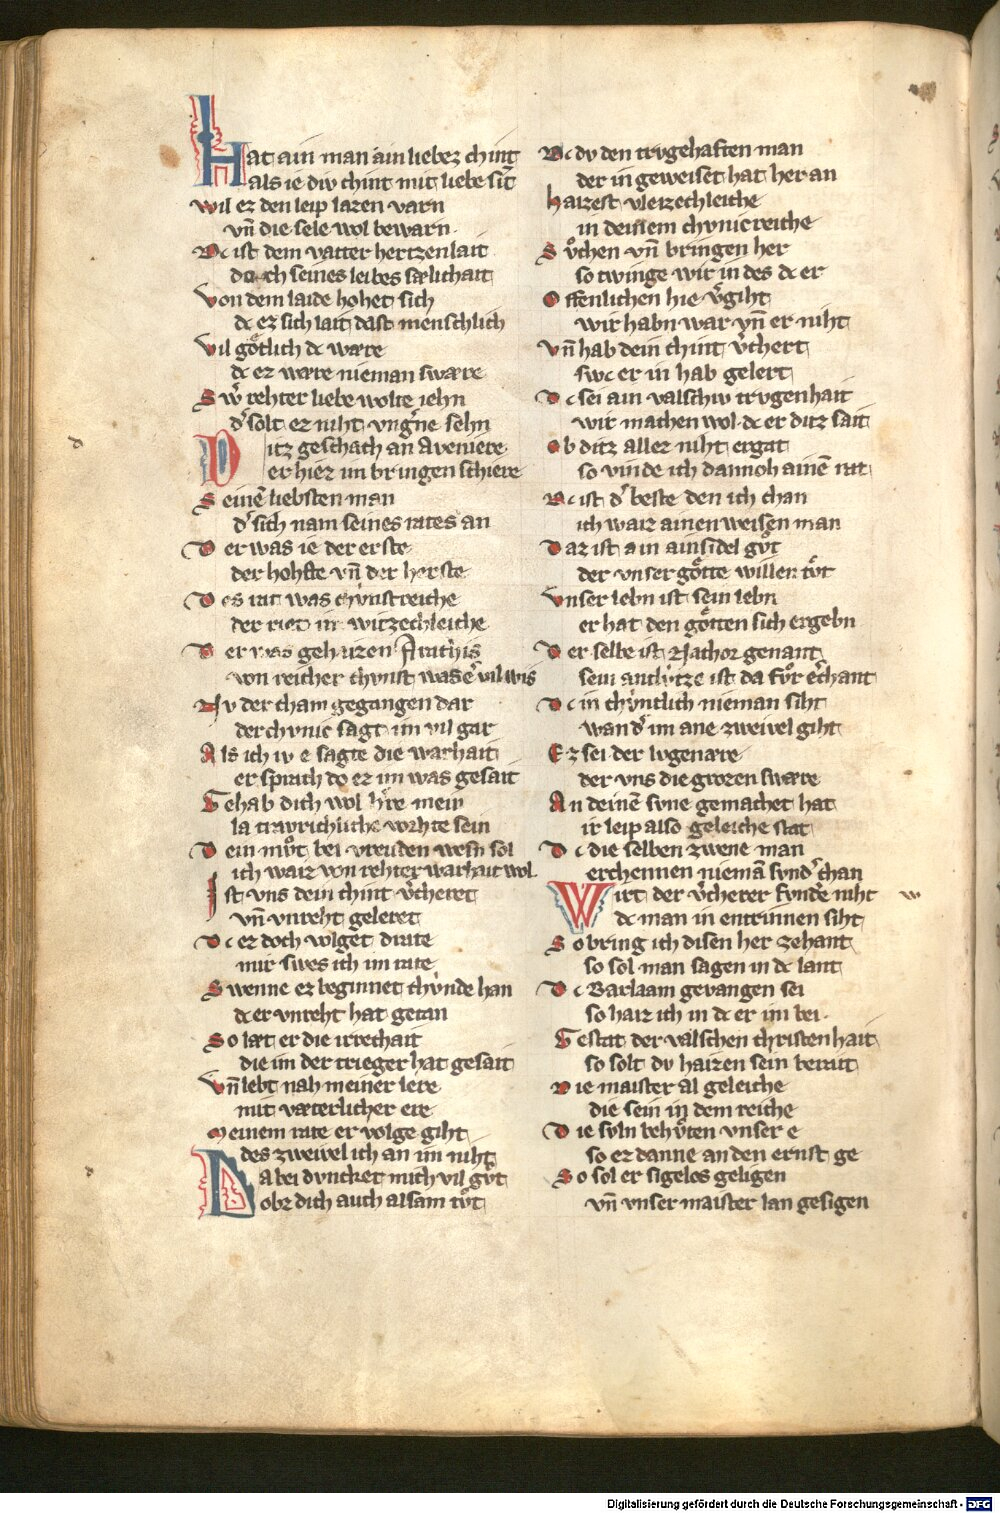 Hat ain man ain liebez chint
als ie div chint mit liebe sit
wil er den leip lazen varn
vn̄ die sele wol bewarn
Dc ist dem vatter hertzen lait
doch seines leibes sælichait
Von dem laide hohet sich
dc ez sich lait dast menschlich
Vil goͤtlich dc wære
dc ez wære nieman swære
Swͬ rehter liebe wolte iehn
dͬ solt ez niht vngͬne sehn
Ditz geschach an Aveniere
er hiez im bringen schiere
Seinē liebsten man
dͬ sich nam seines rates an
Der was ie der erste
der hohste vn̄ der herste
Des rat was chvnstreiche
der riet im witzechleiche
Der was gehaizen Arachis
von reicher chvnst was eͬ vil wis
Nv der cham gegangen dar
der chvnic sagt im vil gar
Als ich iv e sagte die warhait
er sprach do ez im was gesait
Gehab dich wol hͬre mein
la travrichliche vorhte sein
Dein mvͦt bei vreuden wesn sol
ich waiz von rehter warhait wol
Ist vns dein chint vͬcheret
vn̄ vnreht geleret
Dc ez doch volget drate
mir swes ich im rate
Swenne ez beginnet chvnde han
dc er vnreht hat getan
So læt er die irrechait
die im der trieger hat gesait
Vn̄ lebt nah meiner lere
mit væterlicher ere
Meinem rate er volge giht
des zweivel ich an im niht
Da bei dvncket mich vil gvͦt
obz dich auch alsam tvͦt
Dc dv den trvgehaften man
der in geweiset hat her an
Haizest vleizechleiche
in deinem chvnicreiche
Svͦchen vn̄ bringen her
so twinge wir in des dc er
Offenlichen hie vͬgiht
wir habn war vn̄ er niht
Vn̄ hab dein chint vͬchert
swc er in hab gelert
Dc sei ain valschiv trvgenhait
wir machen wol dc er ditz sait
Ob ditz allez niht ergat
so vinde ich dannoh ainē rat
Dc ist dͬ beste den ich chan
ich waiz ainen weisen man
Daz ist ain ainsidel gvͦt
der vnser goͤtte willen tvͦt
Vnser lebn ist sein lebn
er hat den goͤtten sich ergebn
Der selbe ist Nachor genant
sein antlvtze ist da fvͦr eͬchant
Dc in chvntlich nieman siht
wan dͬ im ane zweivel giht
Ez sei der lvgenære
der vns die grozen swære
An deinē svne gemachet hat
ir leip also geleiche stat
Dc die selben zwene man
erchennen niemā svndͬ chan
Wirt der vͬcherer fvndē niht
dc man in entrinnen siht
So bring ich disen her zehant
so sol man sagen in dc lant
Dc Barlaam gevangen sei
so haiz ich in dc er im bei
Gestat der valschen christenhait
so solt dv haizen sein berait
Die maister al geleiche
die sein in dem reiche
Die svln behvͦten vnser e
so ez danne an den ernst ge
So sol er sigelos geligen
vn̄ vnser maister lan gesigen
Digitalisierung gefördert durch die Deutsche Forschungsgemeinschaft - DFG